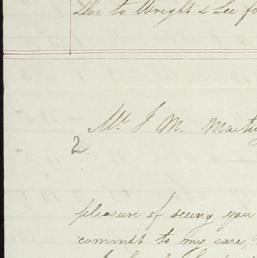 Due to Wright & Lee for
Mr J M. Martin
2
pleasure of seeing you
commit to my care,